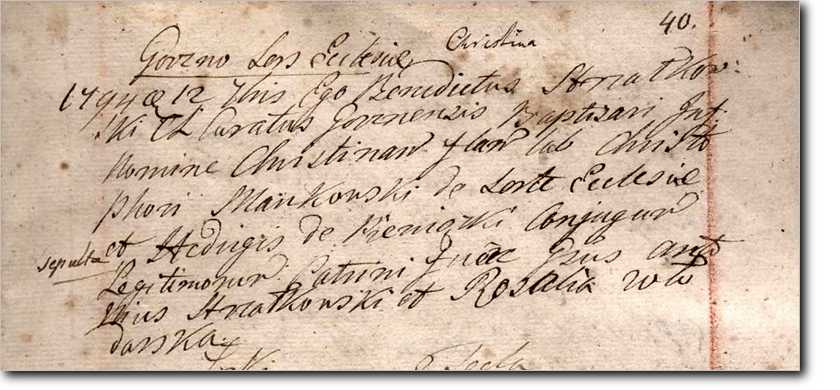 40.
Govzno Sors Ecclesiæ Christina
1794 æ 12 Xbis Ego Benedictus Strzatkov:
ski Curatus Govznensis Baptizavi Inf.
Nomine Christinam flam Lab Christo
phori Mankowski de Sorte Ecclesiæ
et Hedvigis de Conjugum
sepulta
Legitimorum Patrini fuere Gnus Anto
nius Strzatkowski et Rosalia Wło
darska
Tecla